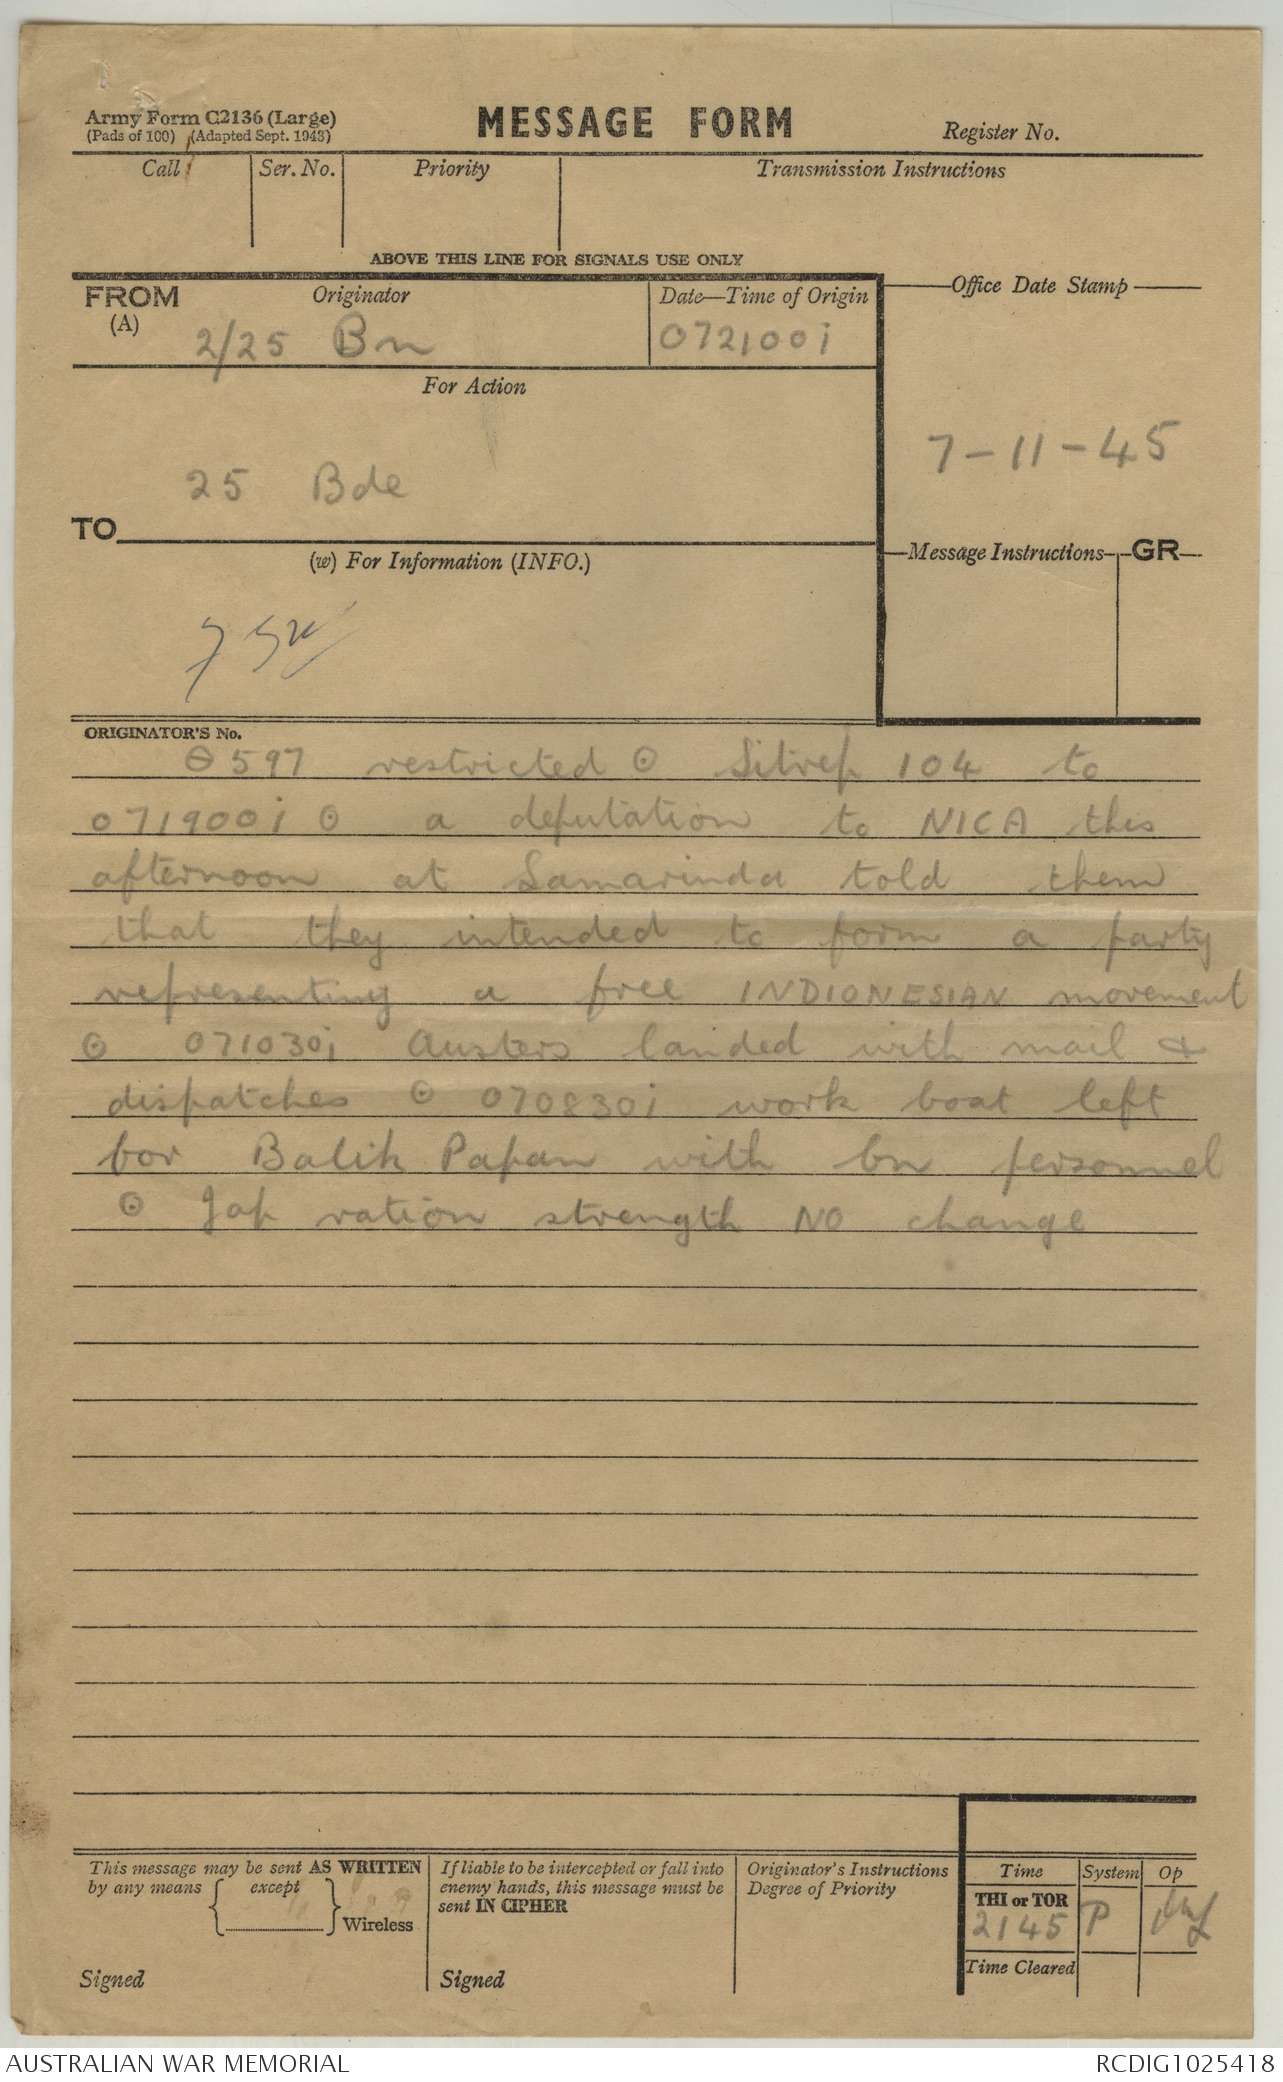 Army Form C2136 (Large)
(Pads of 100) (Adapted Sept. 1943)
MESSAGE FORM
Register No.
Call
Ser. No.
Priority
Transmission Instructions
ABOVE THIS LINE FOR SIGNALS USE ONLY
FROM
(A)
Originator
2/25 Bn
Date—Time of Origin
072100i
Office Date Stamp
7-11-45
For Action
25 Bde
TO
(w) For Information (INFO.)
Message Instructions
GR
ORIGINATOR'S No.
O597 restricted ⊙ Sitrep 104 to
071900i ⊙ a deputation to NICA this
afternoon at Samarinda told them
that they intended to form a party
representing a free INDIONESIAN movement
⊙ 071030i Austers landed with mail &
dispatches ⊙ 070830i work boat left
for Balik Papan with bn personnel
⊙ Jap ration strength NO change
This message may be sent AS WRITTEN
by any means { except } Wireless
Signed
If liable to be intercepted or fall into
enemy hands, this message must be
sent IN CIPHER
Signed
Originator's Instructions
Degree of Priority
Time
System
Op
THI or TOR
2145
P
Time Cleared
AUSTRALIAN WAR MEMORIAL
RCDIG1025418